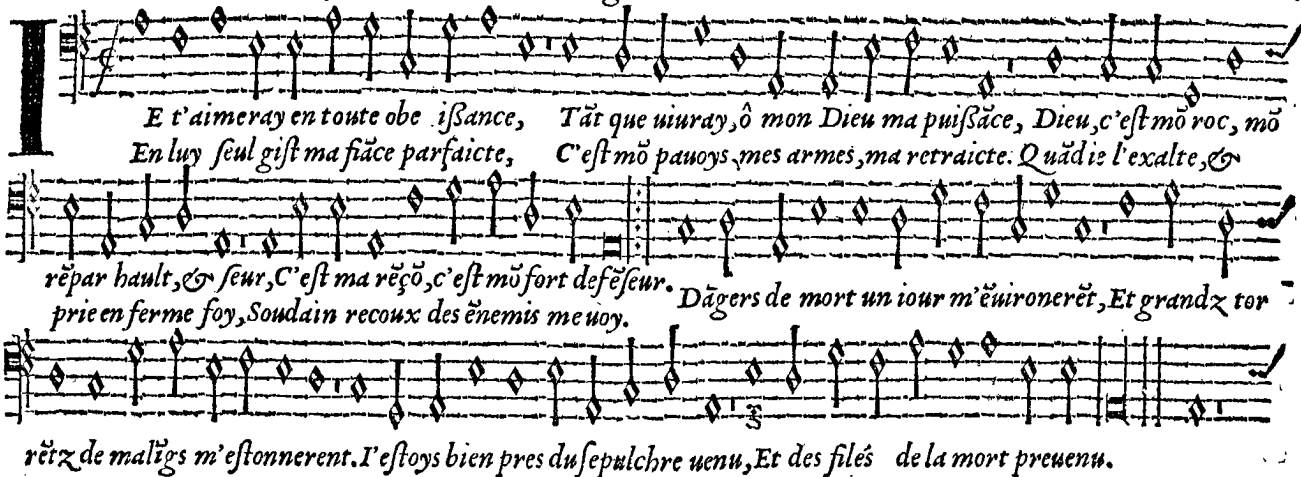 I
E t'aimeray en toute obe ißance, Tãt que uiuray, ô mon Dieu ma puißãce, Dieu, c'eſt mõ roc, mõ
En luy ſeul giſt ma fiãce parfaicte, C'eſt mõ pauoys, mes armes, ma retraicte. Quãd ie l'exalte, &
rẽpar hault, & ſeur, C'eſt ma rẽçõ, c'eſt mõ fort defẽſeur.
prie en ferme foy, Soudain recoux des ẽnemis me uoy.
Dãgers de mort un iour m'ẽuironerẽt, Et grandz tor
rẽtz de malĩgs m'eſtonnerent. I'eſtoys bien pres du ſepulchre uenu, Et des filés de la mort preuenu.